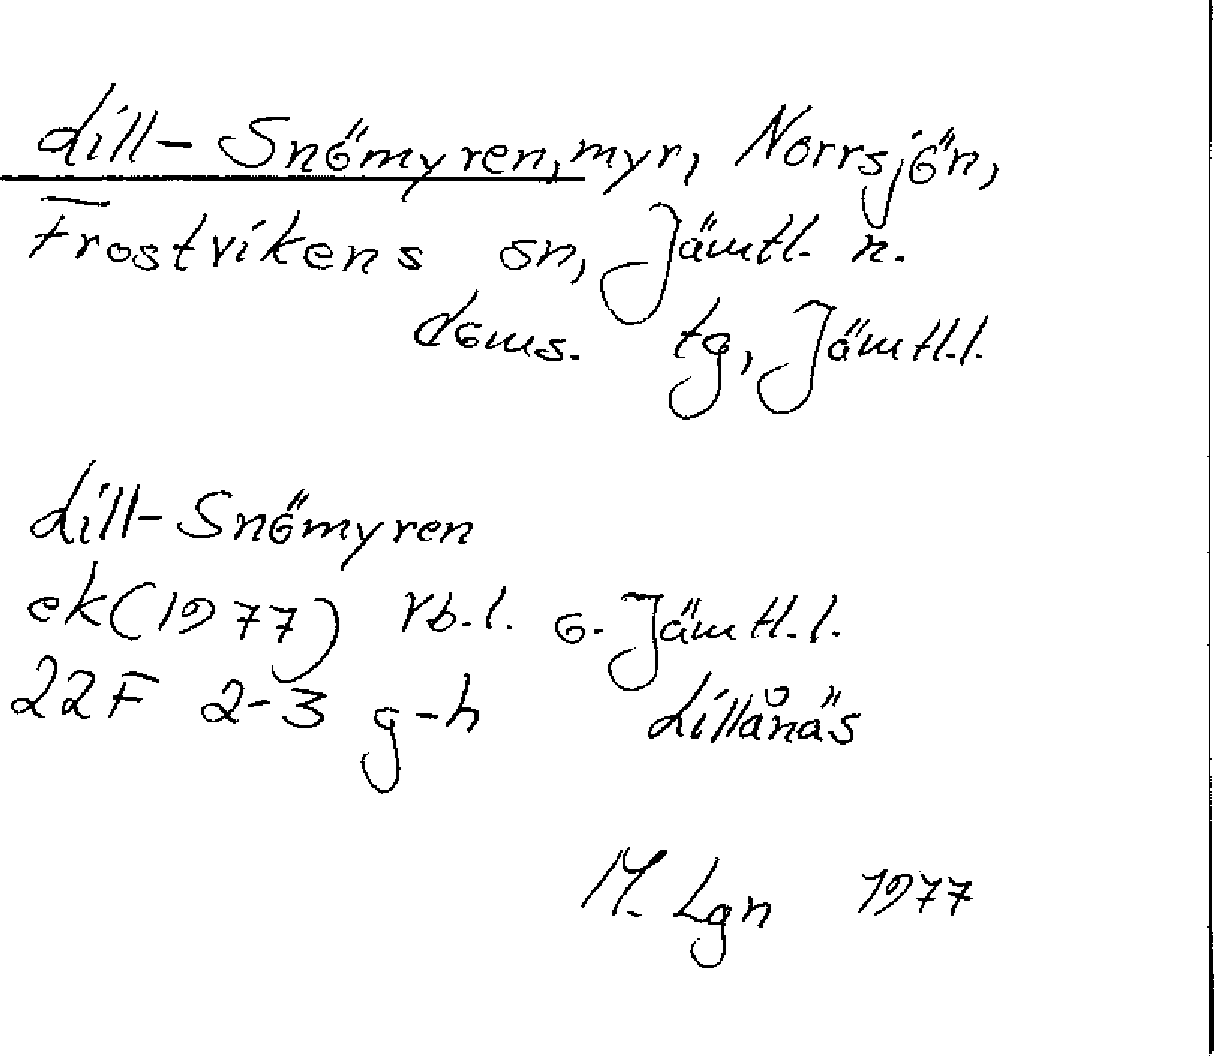 Lill-Snömyren, myr, Norrsjön,
Frostvikens sn, Jämtl. n.
doms. tg, Jämtl.l.
Lill-Snömyren
ek(1977) rb.l. o. Jämtl.l.
22F 2-3 g-h Lillånäs
M. Lgn 1977